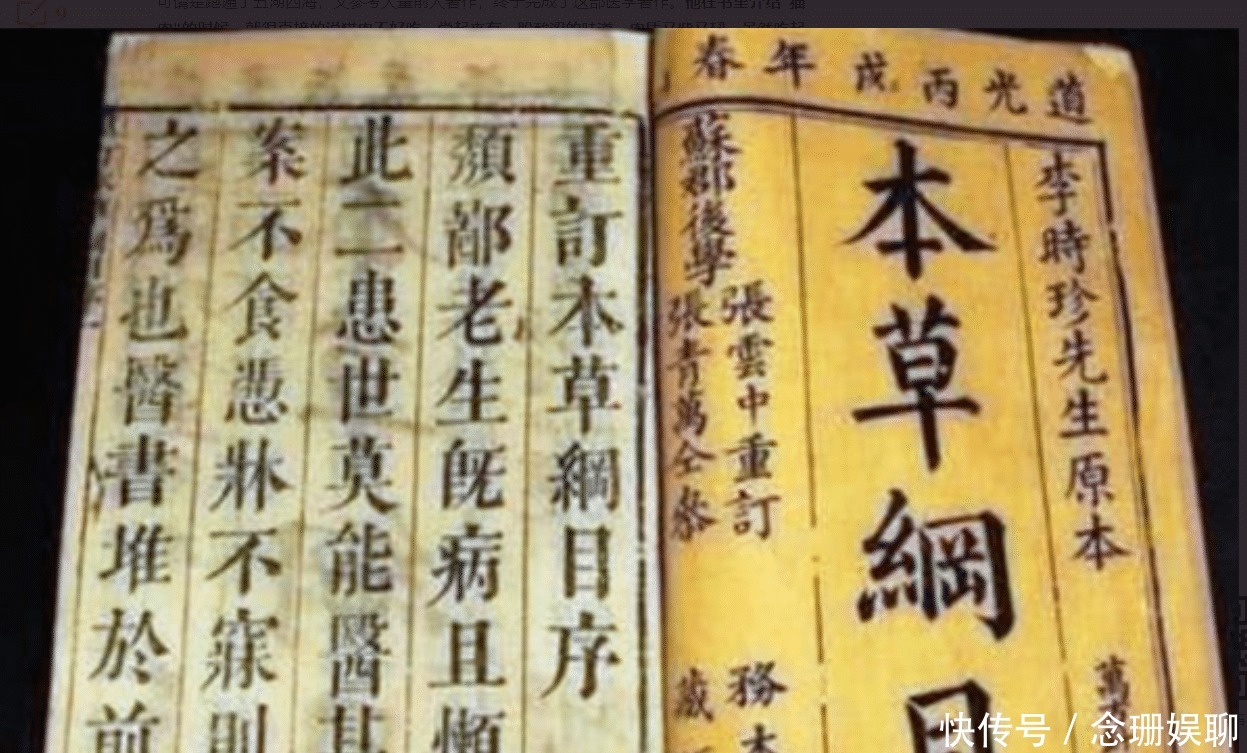 9
道光丙戌年春
李時珍先生原本
萬
本草綱目
蘇郡後學
張雲中重訂
張青萬仝參
務本
藏
重訂本草綱目序
頽鄙老生旣病且懶
此二患世莫能醫其
案不食憑牀不寐則
之爲也醫書堆於前
快传号 / 念珊娱聊